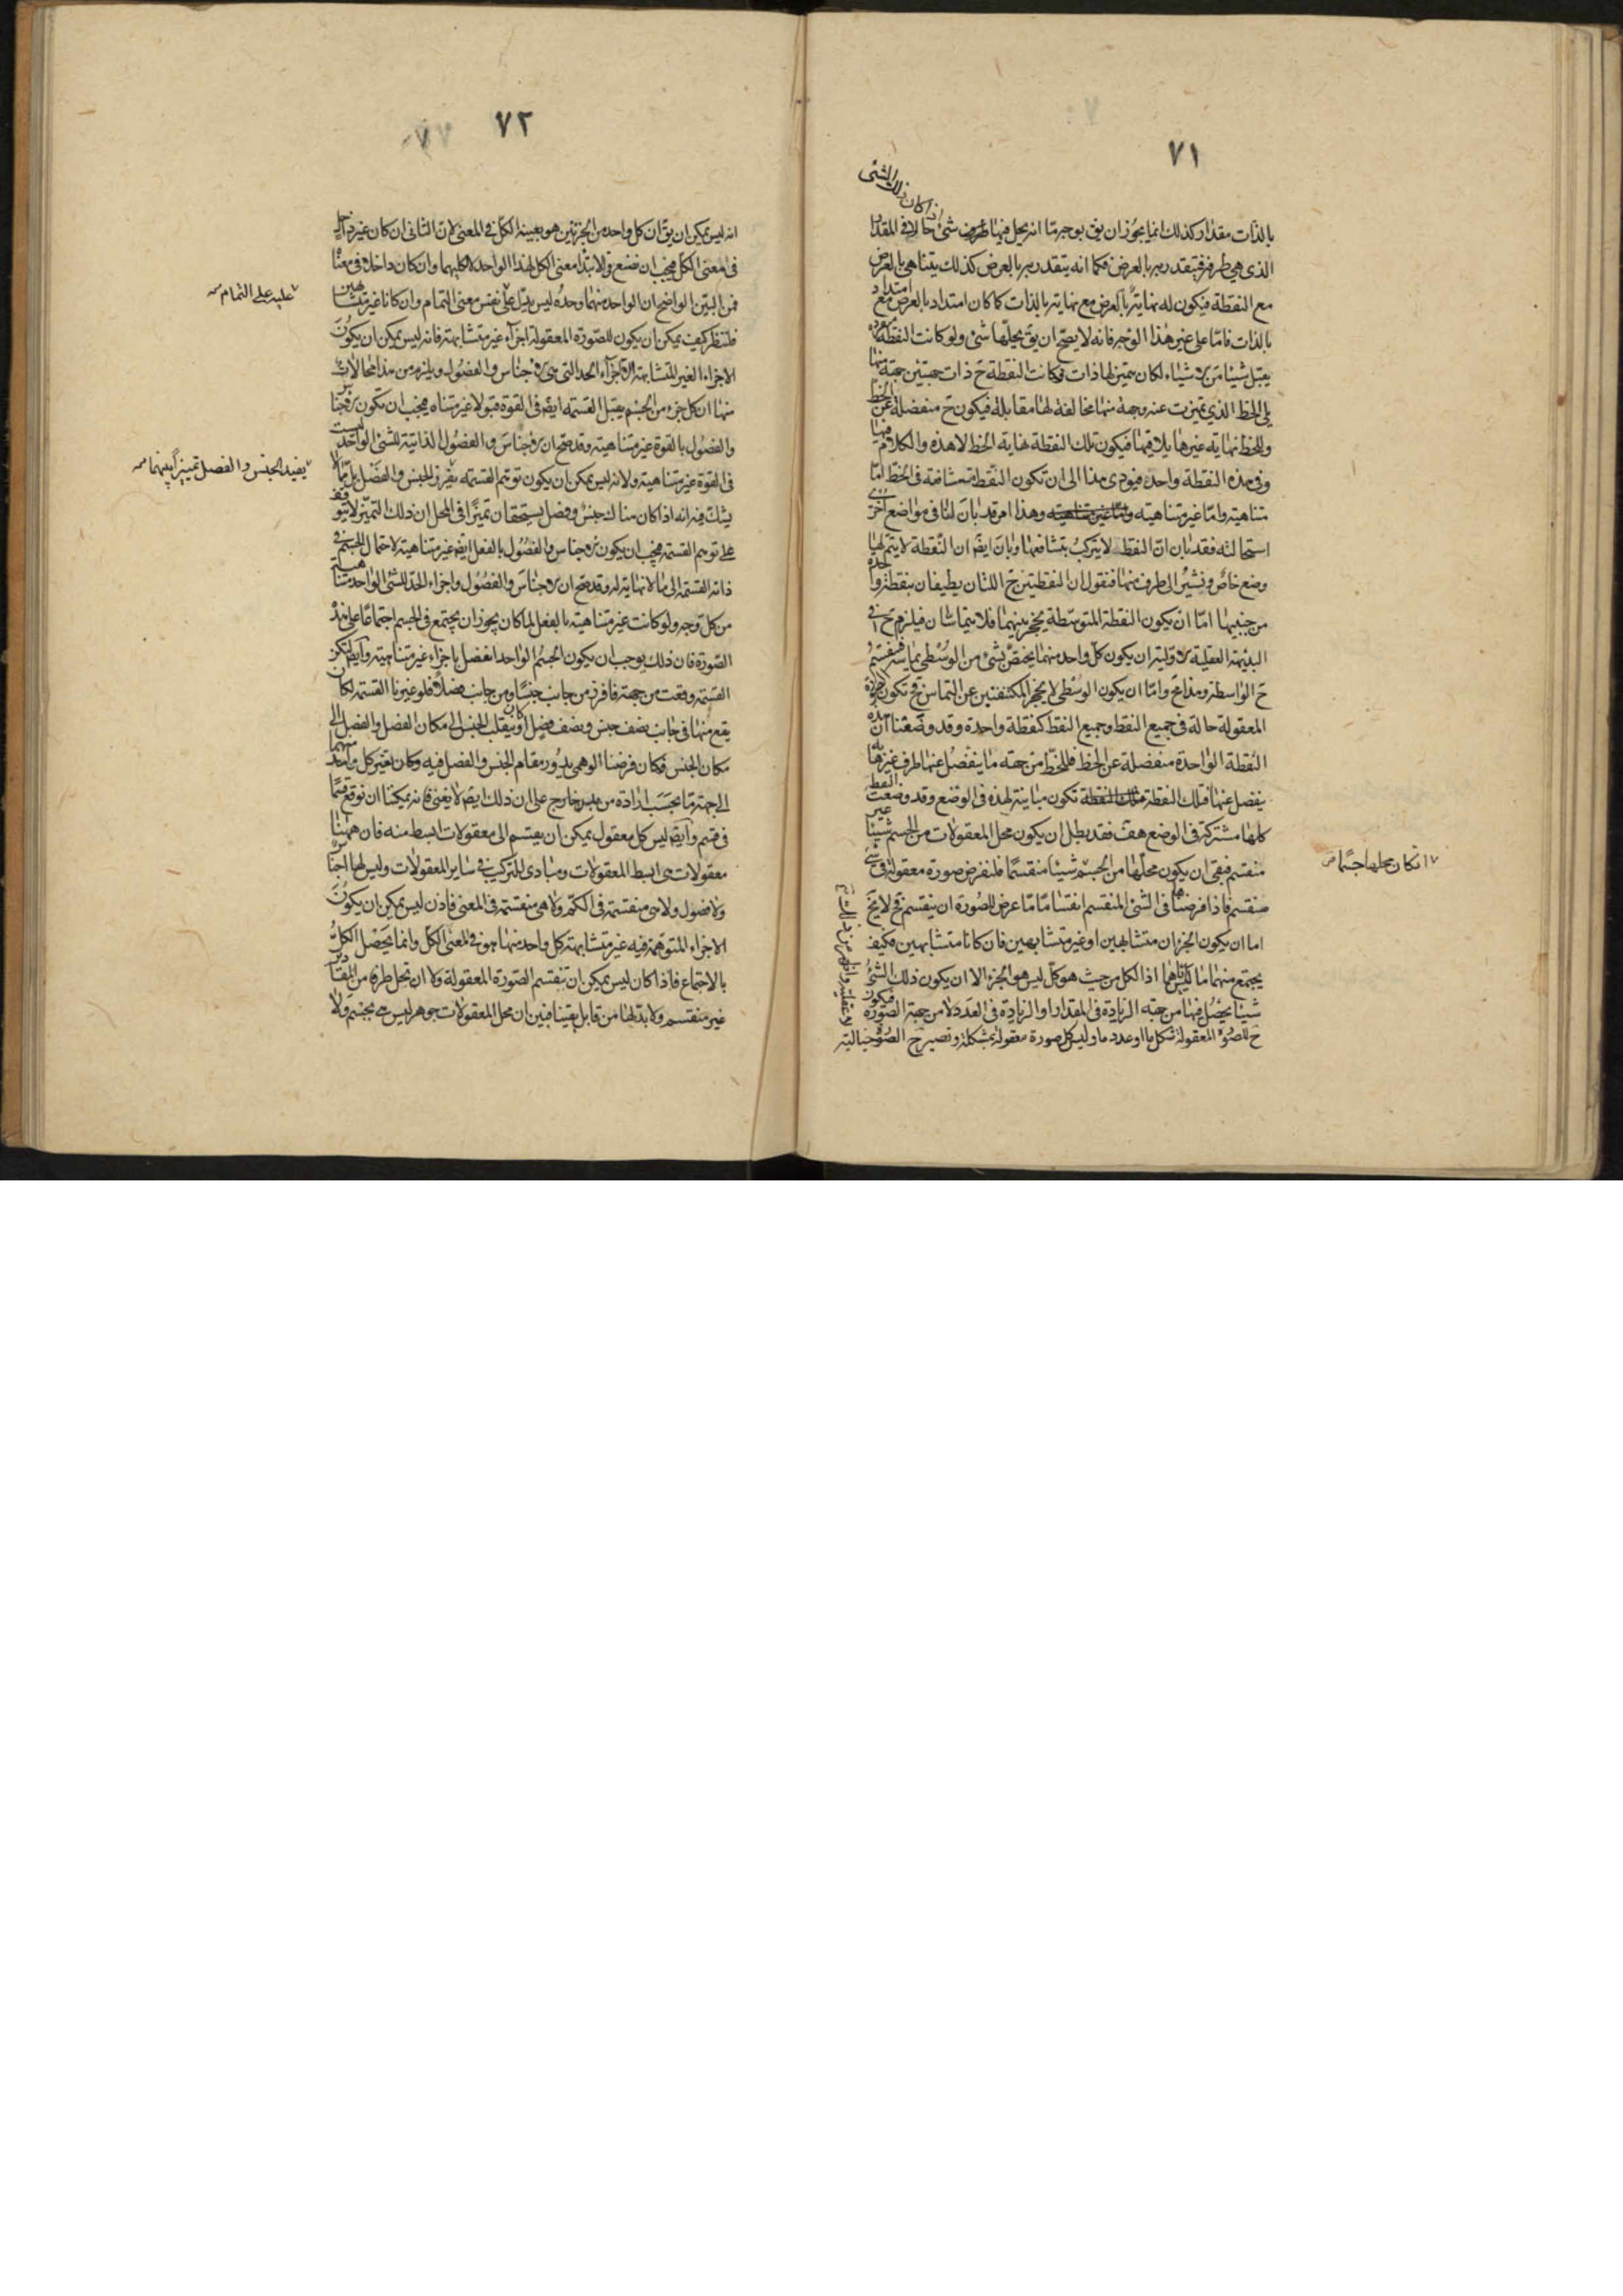 ٧١
ان كان ذلك الشى
بالذات مقدار كذلك انما يجوز ان يق بوجه ما انه يحل فيها طرف شى حالا فى المقدار
الذى هى طرفه فيتقدر به بالعرض فكما انه يتقدر به بالعرض كذلك يتناهى بالعرض
مع النقطة فيكون له نهاية بالعرض مع نهاية بالذات كما كان امتداد بالعرض مع امتداد
بالذات فامّا على غير هذا الوجه فانه لا يصح ان يق يحلها شى ولو كانت النقطة
يقبل شيئا من الاشياء لكان يتميز لها ذات فكانت النقطة ح ذات جهتين جهة منها
يلى الخط الذى تميزت عنه وجهة منها مخالفة لها مقابلة فيكون ح منفصلة عن الخط
وللخط نهاية غيرها يلاقيها فيكون تلك النقطة نهاية الخط لا هذه والكلام فيها
وفى هذه النقطة واحد فيؤدى هذا الى ان تكون النقط متشافعة فى الخط امّا
متناهية وامّا غير متناهية وهذا امر قد بان لنا فى مواضع اخرى
استحالته فقد بان انّ النقط لا يتركب بتشافعها وبان ايضا ان النقطة لا يتم لها
وضع خاص ونشير الى طرف منها فنقول ان النقطتين ح اللتان يطيفان بنقطة واحدة
من جنبيها امّا ان يكون النقطة المتوسطة يحجز بينهما فلا يتماسان فيلزم ح فى
البديهة العقلية الاولية ان يكون كل واحد منهما يختص بشى من الوسطى يماسه فينقسم
ح الواسطة وهذا مح وامّا ان يكون الوسطى لا يحجز المكتنفتين عن التماس فح تكون الصورة
المعقولة حالة فى جميع النقط وجميع النقط كنقطة واحدة وقد وضعنا ان هذه
النقطة الواحدة منفصلة عن الخط فللخط من جهة ما ينفصل عنها طرف غيرها
ينفصل عنها فتلك النقطة تكون مباينة لهذه فى الوضع وقد وضعت النقط
كلها مشتركة فى الوضع هف فقد بطل ان يكون محل المعقولات من الجسم شيئا غير
منقسم فبقى ان يكون محلها من الجسم شيئا منقسما فلنفرض صورة معقولة فى شى
منقسم فاذا فرضناها فى الشى المنقسم انقساما ما عرض للصورة ان ينقسم فح لا يخ
اما ان يكون الجزءان متشابهين او غير متشابهين فان كانا متشابهين فكيف
يجتمع منهما ما ليس هما اذا الكل من حيث هو كل ليس هو الجزء الا ان يكون ذلك الشى
شيئا يحصل فيهما من جهة الزيادة فى المقدار او الزيادة فى العدد لا من جهة الصورة فيكون
ح للصورة المعقولة شكل ما او عدد ما وليس كل صورة معقولة بمشكلة وتصير ح الصورة خيالية
ان كان محلها جسما
٧٢
انه ليس يمكن ان يق ان كل واحد من الجزئين هو بعينه الكل فى المعنى لان الثانى ان كان غير داخل
فى معنى الكل فيجب ان نضع فى الابتداء معنى الكل لهذا الواحد لا كليهما وان كان داخلا فى معناه
فمن البين الواضح ان الواحد منهما وحده ليس يدل على نفس معنى التمام وان كانا غير متشابهين
فلننظر كيف يمكن ان يكون للصورة المعقولة اجزاء غير متشابهة فانه ليس يمكن ان يكون
الاجزاء الغير المتشابهة الا اجزاء الحد التى هى الاجناس والفصول ويلزم من هذا محالات
منها ان كل جزء من الجسم يقبل القسمة ايض فى القوة قبولا غير متناه فيجب ان تكون الاجناس
والفصول بالقوة غير متناهية وقد صح ان الاجناس والفصول الذاتية للشى الواحد ليست
فى القوة غير متناهية ولانه ليس يمكن ان يكون توهم القسمة يفرز الجنس والفصل بل مما لا
يشك فيه انه اذا كان هناك جنس وفصل يستحقان تميزا فى المحل ان ذلك التميز لا يتوقف
على توهم القسمة فيجب ان يكون الاجناس والفصول بالفعل ايض غير متناهية لاحتمال الجسم فى
ذاته القسمة الى ما لا نهاية له وقد صح ان الاجناس والفصول واجزاء الحد للشى الواحد متناهية
من كل وجه ولو كانت غير متناهية بالفعل لما كان يجوز ان يجتمع فى الجسم اجتماعا على هذه
الصورة فان ذلك يوجب ان يكون الجسم الواحد انفصل باجزاء غير متناهية وايض لتكن
القسمة وقعت من جهة فافرزت من جانب جنسا ومن جانب فصلا فلو غيرنا القسمة لكان
يقع منها فى جانب نصف جنس ونصف فصل او كان ينقلب الجنس الى مكان الفصل والفصل الى
مكان الجنس فكان فرضنا الوهمى يدور مقام الجنس والفصل فيه وكان يغير كل واحد منهما
الى جهة ما بحسب ارادة من مريد خارج على ان ذلك ايض لا يغنى فانه يمكننا ان نوقع قسما
فى قسم وايض ليس كل معقول يمكن ان يقسم الى معقولات ابسط منه فان ههنا
معقولات هى ابسط المعقولات ومبادى للتركيب فى ساير المعقولات وليس لها اجناس
ولا فصول ولا هى منقسمة فى الكم ولا هى منقسمة فى المعنى فاذن ليس يمكن ان يكون
الاجزاء المتوهمة فيه غير متشابهة كل واحد منها هو فى معنى الكل وانما يحصل الكل
بالاجتماع فاذا كان ليس يمكن ان تنقسم الصورة المعقولة ولا ان تحل طرفا من المقادير
غير منقسم ولا بد لها من قابل فينا فبين ان محل المعقولات جوهر ليس بجسم ولا
عليه على التمام
يفيد الجنس والفصل تمييزا بينهما